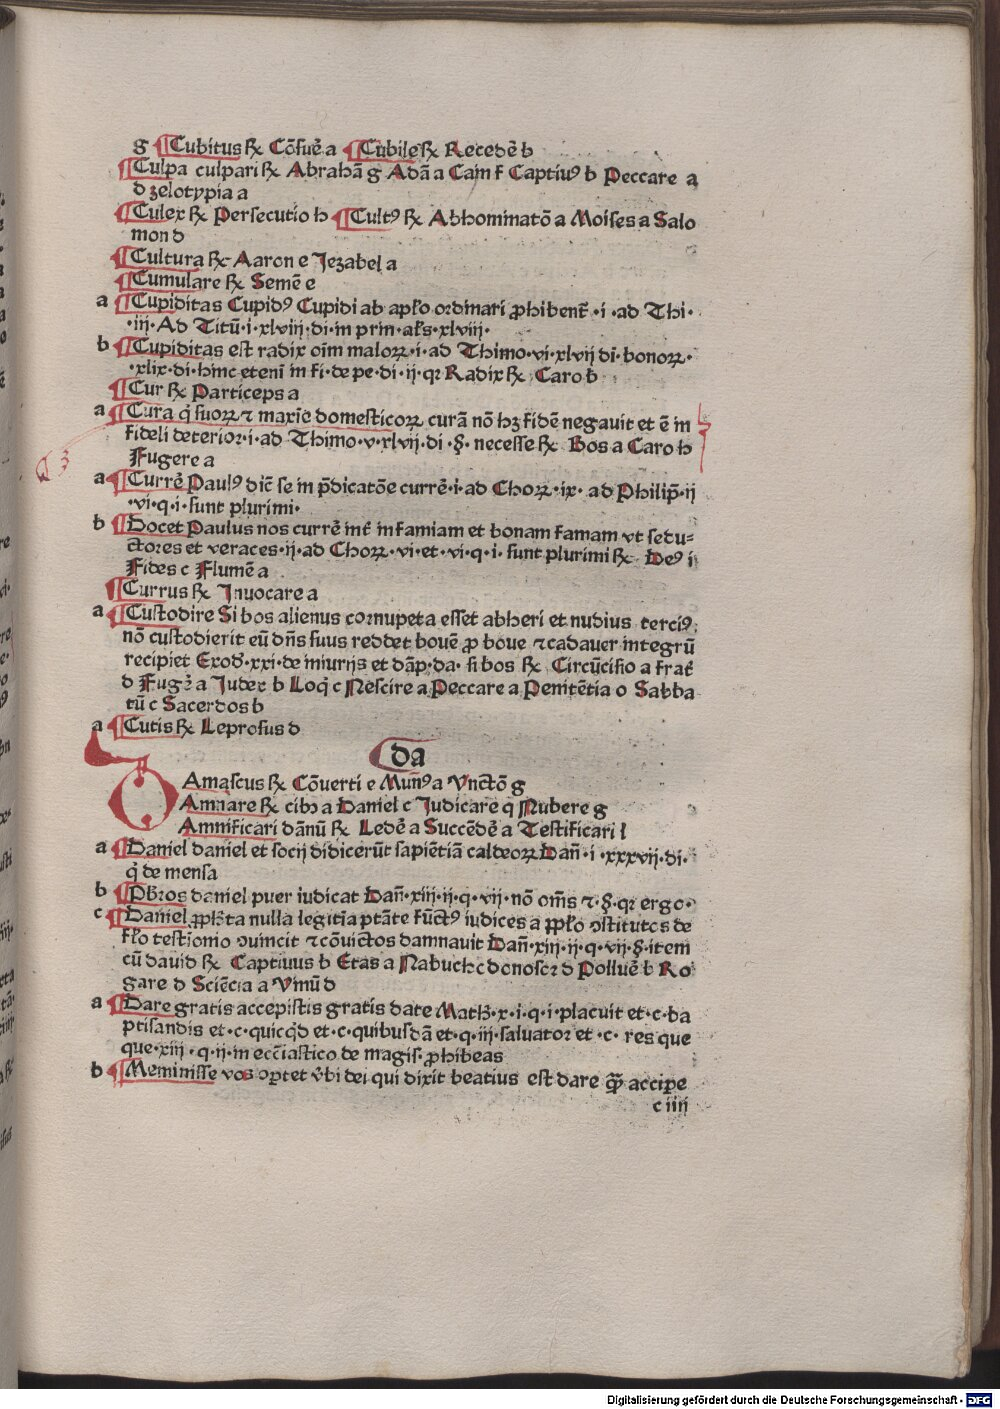 g ¶Cubitus ℞ Cõsuẽ a ¶Cubile ℞ Recedẽ b
¶Culpa culpari ℞ Abrahã g Adã a Caim f Captiuꝰ b Peccare a
d zelotypia a
¶Culex ℞ Persecutio h ¶Cultꝰ ℞ Abhominatõ a Moises a Salo
mon d
¶Cultura ℞ Aaron e Jezabel a
¶Cumulare ℞ Semẽ e
a ¶Cupiditas Cupidꝰ Cupidi ab aplo ordinari ꝓhibent̃ ·i ·ad Thi·
·iij· Ad Titũ·i·xlviij·di·in prin·al's·xlviij·
b ¶Cupiditas est radix oim maloꝝ·i·ad Thimo·vi·xlvij di·bonoꝝ·
·xlix·di·hinc eteni in fi·de pe·di·ij·qr Radix ℞ Caro b
¶Cur ℞ Particeps a
a ¶Cura q̇ suoꝝ ⁊ maxie domesticoꝝ curã nõ hꝫ fidẽ negauit et ẽ in
fideli deterior·i·ad Thimo·v·xlvij·di·§·necesse ℞ Bos a Caro h
Fugere a
a ¶Currẽ Paulꝰ dic̃ se in p̃dicatõe currẽ·i·ad Choꝝ·ix· ad Philip̃·ij
·vi·q·i·sunt plurimi·
b ¶Docet Paulus nos currẽ int̃ infamiam et bonam famam vt sedu⸗
ctores et veraces·ij·ad Choꝝ·vi·et·vi·q·i·sunt plurimi ℞ Deꝰ i
Fides c Flumẽ a
¶Currus ℞ Inuocare a
a ¶Custodire Si bos alienus cornupeta esset ab heri et nudius terciꝰ·
nõ custodierit eũ dñs suus reddet bouẽ ꝓ boue ⁊ cadauer integrũ
recipiet Exod̃·xxi·de iniurijs et dãp·da·si bos ℞ Circũcisio a frat̃
d Fuge a Judex b Loq̇ c Nescire a Peccare a Penitẽtia o Sabba
tũ c Sacerdos b
a ¶Cutis ℞ Leprosus d
da
DAmascus ℞ Cõuerti e Munꝰ a Vnctõ g
Amnare ℞ cibꝫ a Daniel c Judicare q Nubere g
Amnificari dãnũ ℞ Ledẽ a Succẽdẽ a Testificari l
a ¶Daniel daniel et socij didicerũt sapiẽtiã caldeoꝝ Dañ·i·xxxvij·di·
q̇ de mensa
b ¶Pbros daniel puer iudicat Dañ·xiij·ij·q·vij·nõ om̃s ⁊·§·qr ergo·
c ¶Daniel ꝓph̃ta nulla legitia ptãte fũctꝰ iudices a pplo ↄstitutos de
flo testionio ↄuincit ⁊ cõuictos damnauit Dañ·xiij·ij·q·vij·§·item
cũ dauid ℞ Captiuus b Etas a Nabuchodonosor d Polluẽ b Ro
gare d Sciẽcia a Vinũ d
a ¶Dare gratis accepistis gratis date Math̃·x·i·q·i·placuit et·c·ba
ptisandis et·c·quicqd et·c·quibusdã et·q·iij·saluator et·c·res que
que·xiij·q·ij·in eccĩastico de magis·ꝓhibeas
b ¶Meminisse vos oꝑtet v̾bi dei qui dixit beatius est dare ꝙ̃ accipe
c iiij
Digitalisierung gefördert durch die Deutsche Forschungsgemeinschaft - DFG